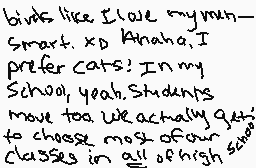 birds like I love my men—
smart. XD Ahaha, I
prefer cats! In my
school, yeah. Students
move too. We actually get
to choose most of our
classes in all of high school